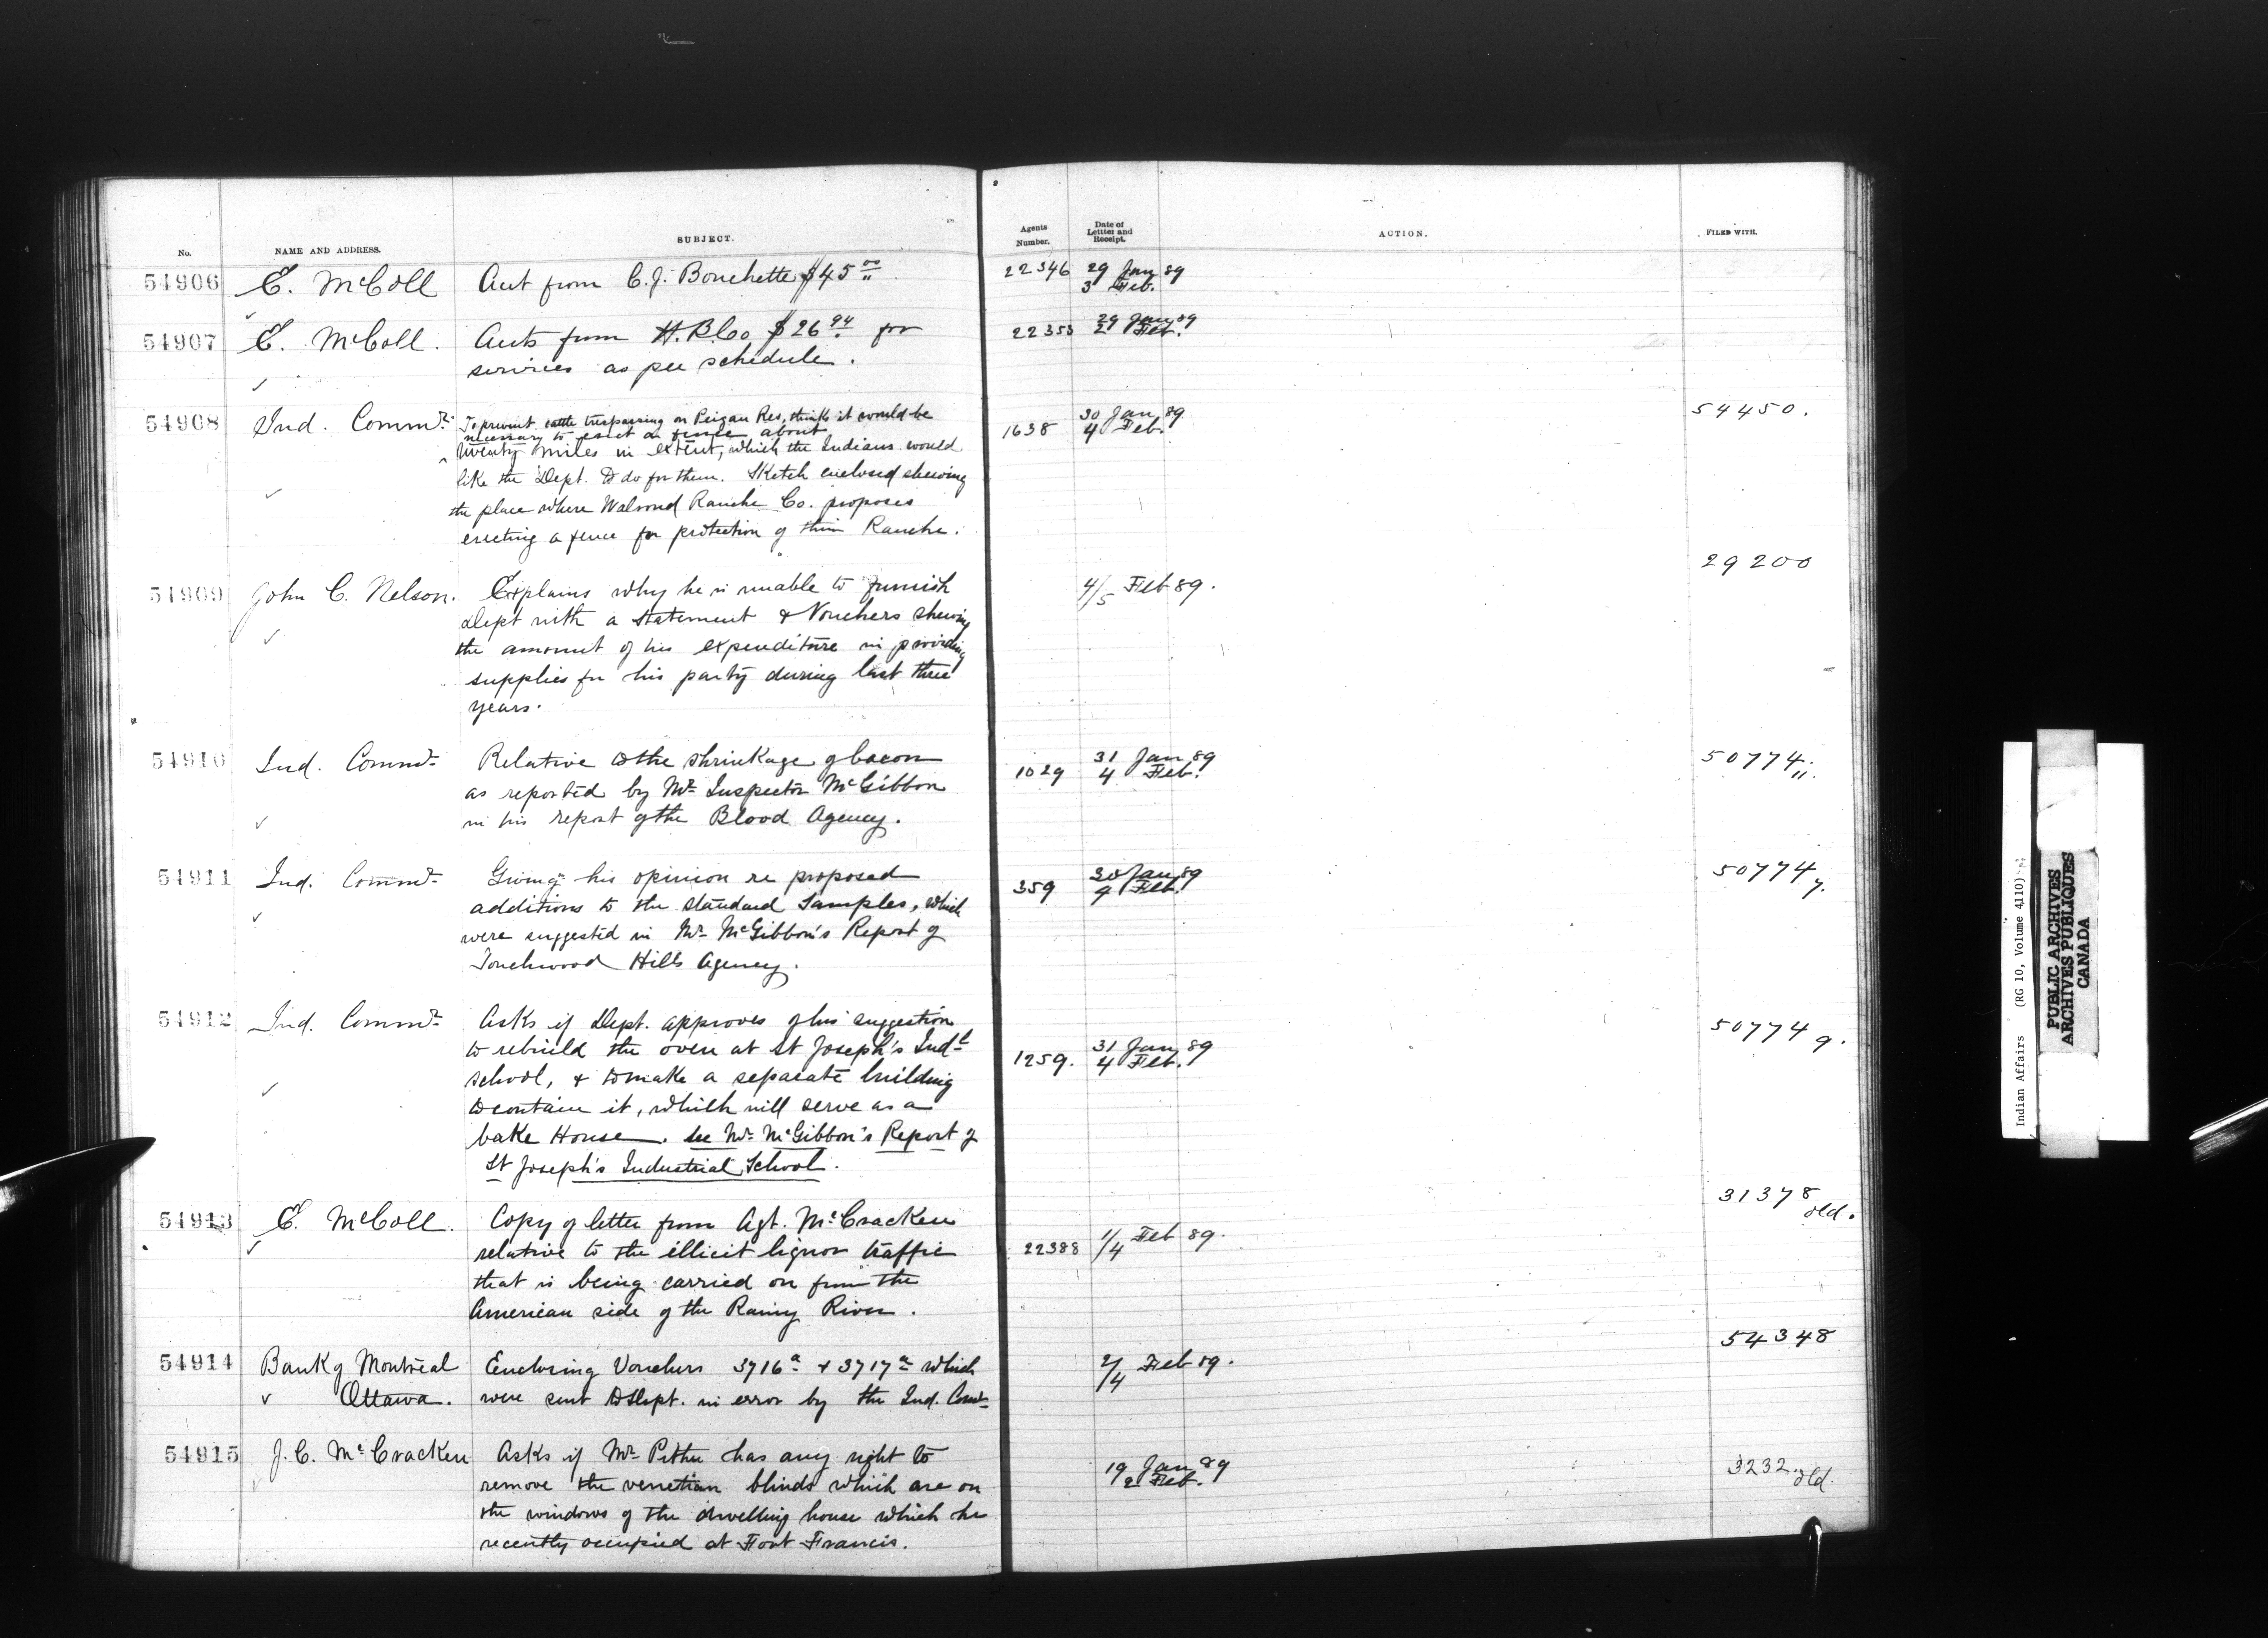 No. NAME AND ADDRESS. SUBJECT. Agents Number. Date of Letter and Receipt. ACTION. FILED WITH.
54906 E. McColl Acct from C. J. Bouchette $45 00 22346 29 Jan 89
3 Feb.
54907 E. McColl. Accts from H.B.Co $26 94 for 22353 29 Jan 89
2 Feb.
services as per schedule.
54908 Ind. Commr. To prevent cattle trespassing on Peigan Res, thinks it would be 1638 30 Jan 89 54450.
necessary to erect a fence about 4 Feb.
twenty miles in extent, which the Indians would
like the Dept. to do for them. Sketch enclosed shewing
the place where Walrond Ranche Co. proposes
erecting a fence for protection of their Ranche.
54909 John C. Nelson. Explains why he is unable to furnish 4/5 Feb 89. 29200
Dept with a statement & Vouchers shewing
the amount of his expenditure in providing
supplies for his party during last three
years.
54910 Ind. Commr Relative to the shrinkage of bacon 1029 31 Jan 89 50774 11.
as reported by Mr Inspector McGibbon 4 Feb.
in his report of the Blood Agency.
54911 Ind. Commr Giving his opinion re proposed 359 30 Jan 89 50774 7.
additions to the standard samples, which Feb.
were suggested in Mr McGibbon's Report of
Touchwood Hills Agency.
54912 Ind. Commr Asks if Dept. approves of his suggestion 50774 9.
to rebuild the oven at St Joseph's Indl 1259. 31 Jan 89
school, & to make a separate building 4 Feb.
to contain it, which will serve as a
bake House. See Mr McGibbon's Report of
St Joseph's Industrial School.
54913 E. McColl. Copy of letter from Agt. McCracken 31378 old.
relative to the illicit liquor traffic 22388 1/4 Feb 89.
that is being carried on from the
American side of the Rainy River.
54914 Bank of Montreal Enclosing Vouchers 3716a & 3717a which 2/4 Feb 89. 54348
Ottawa. were sent to Dept. in error by the Ind. Comr
54915 J. C. McCracken Asks if Mr Pither has any right to 19 Jan 89 3232 old.
remove the venetian blinds which are on 2 Feb.
the windows of the dwelling house which he
recently occupied at Fort Francis.
Indian Affairs (RG 10, Volume 4110)
PUBLIC ARCHIVES
ARCHIVES PUBLIQUES
CANADA